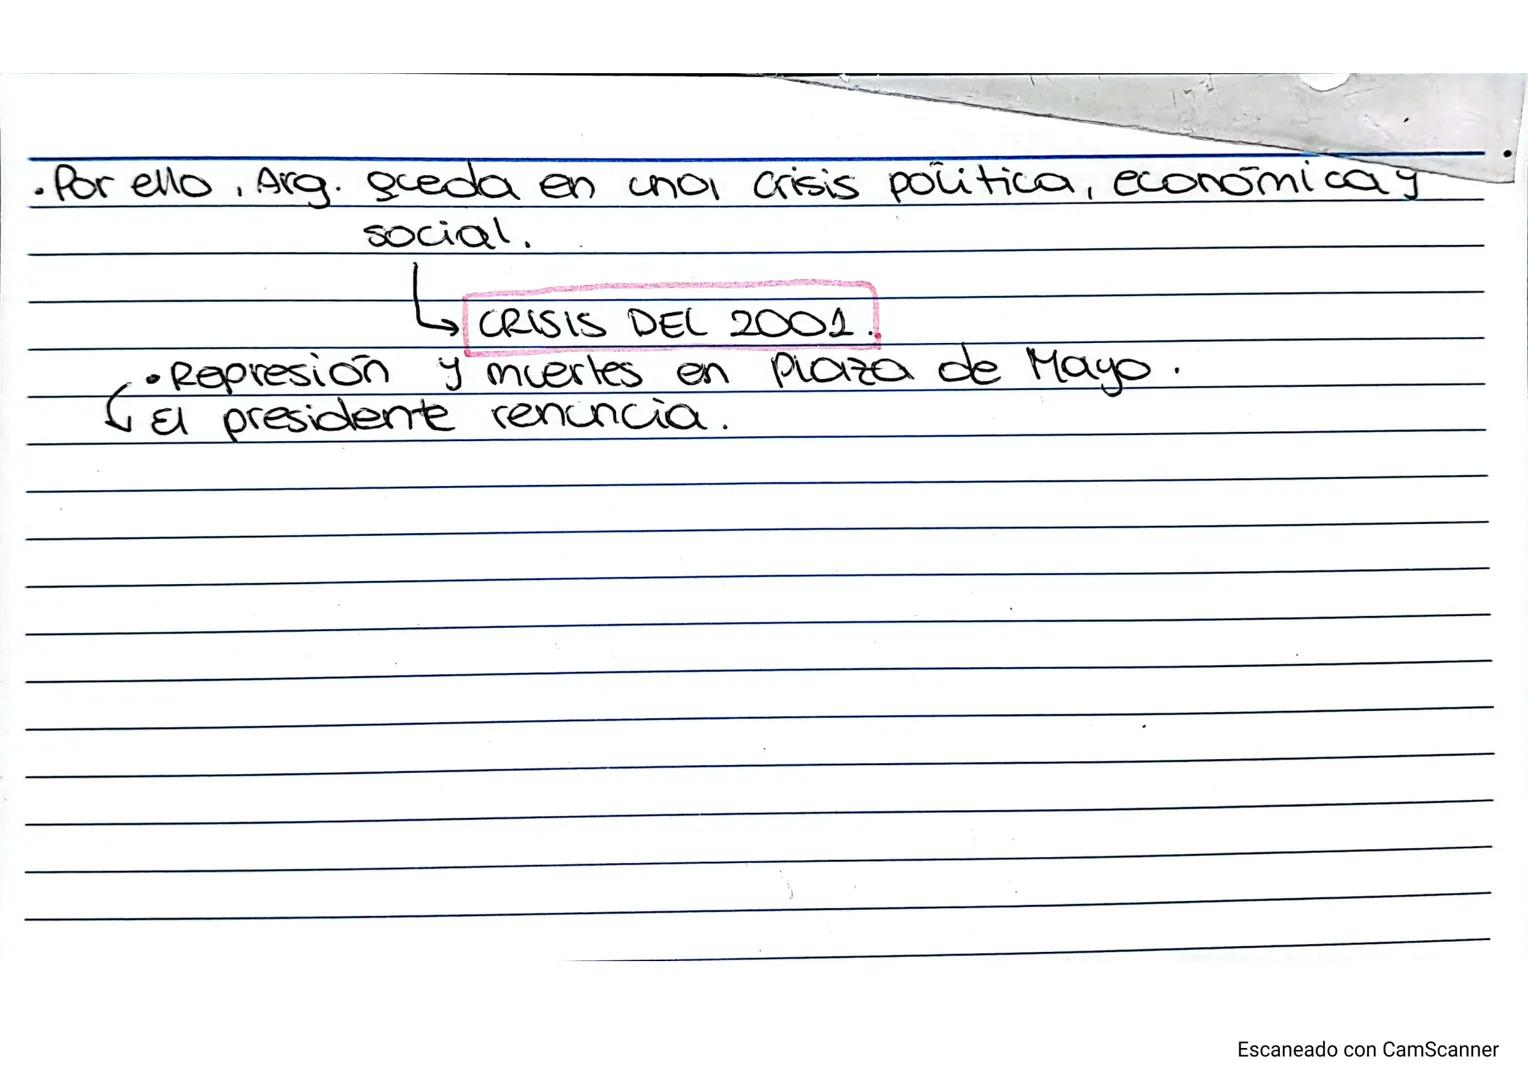 . Por ello, Arg. queda en una crisis política, económica y
social.
CRISIS DEL 2001.
• Represión y muertes en Plaza de Mayo.
El presidente renuncia.
Escaneado con CamScanner